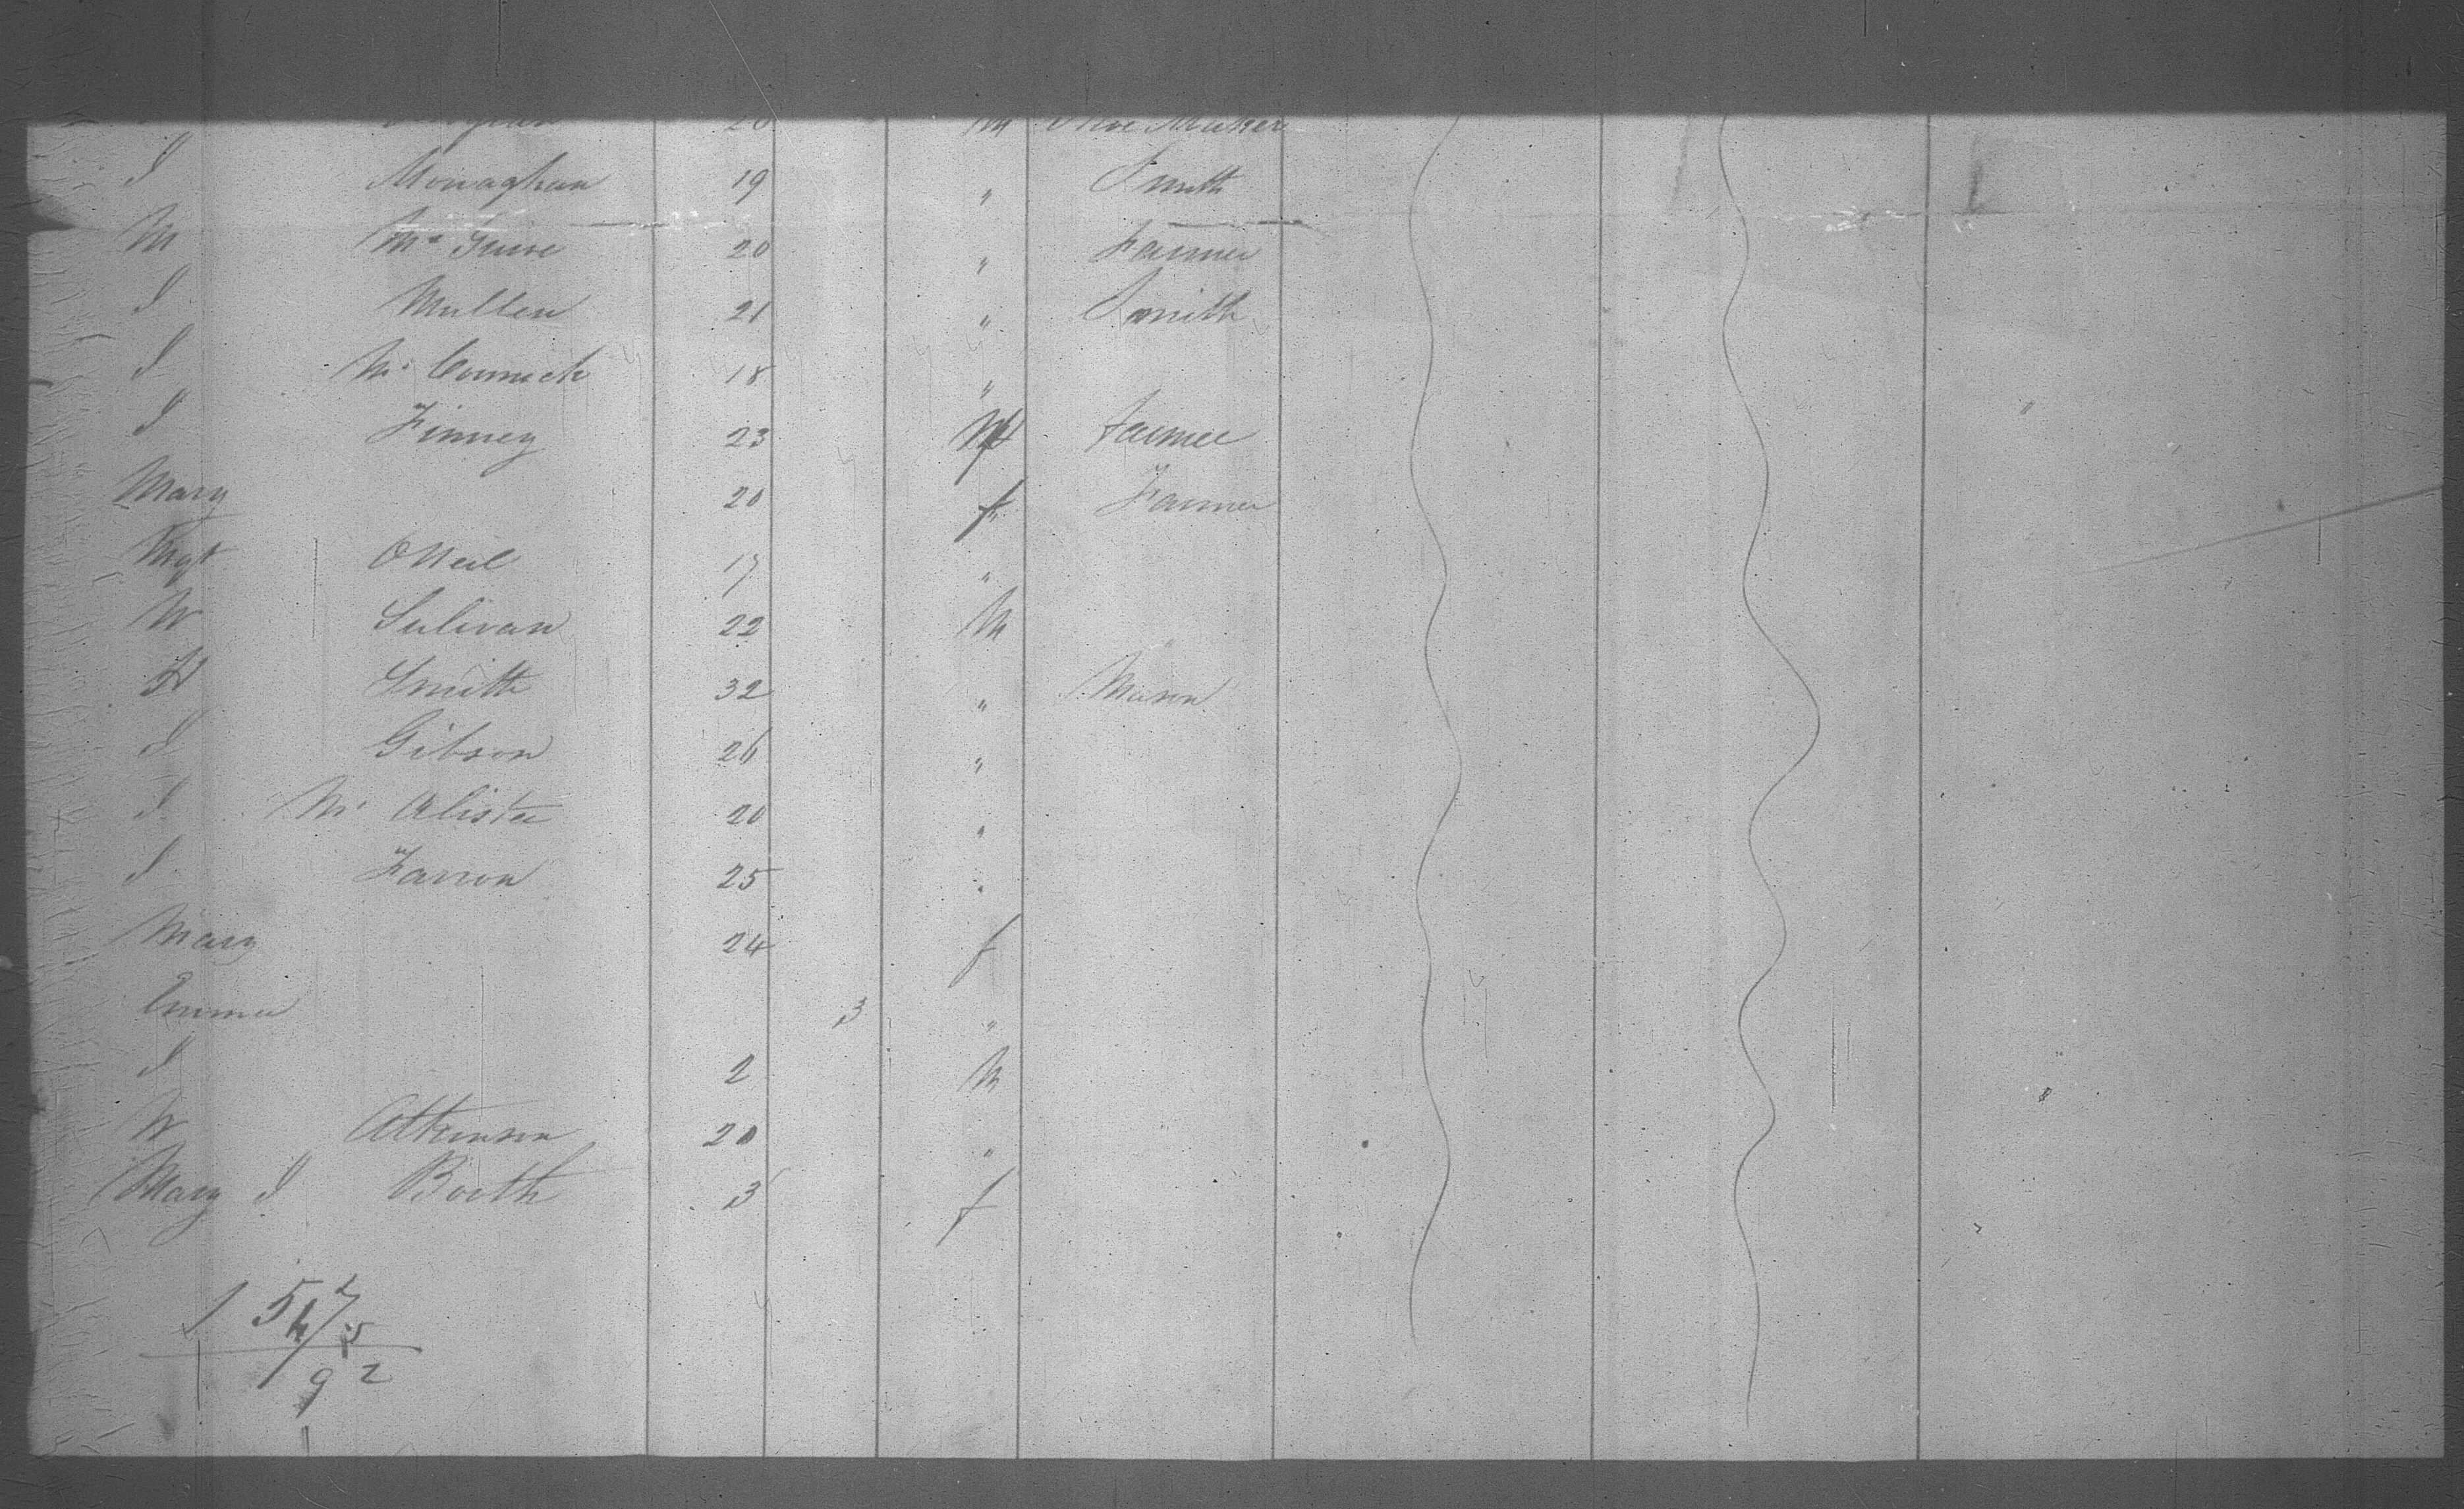 20 M Shoe Maker
J Monaghan 19 " Smith
M 20 " Farmer
J Mullen 21 " Smith
J Mc Cormick 18 "
J Finney 23 M Farmer
Mary 20 f Farmer
Mgt O Neil 17 "
W Sulivan 22 M
H Smith 32 " Mason
J Gibson 26 "
J Mc Alister 20 "
J Farron 25 "
Mary 24 f
Emma 3 "
J 2 M
W Atkinson 20 "
Mary J Booth 3 f
1 5
92